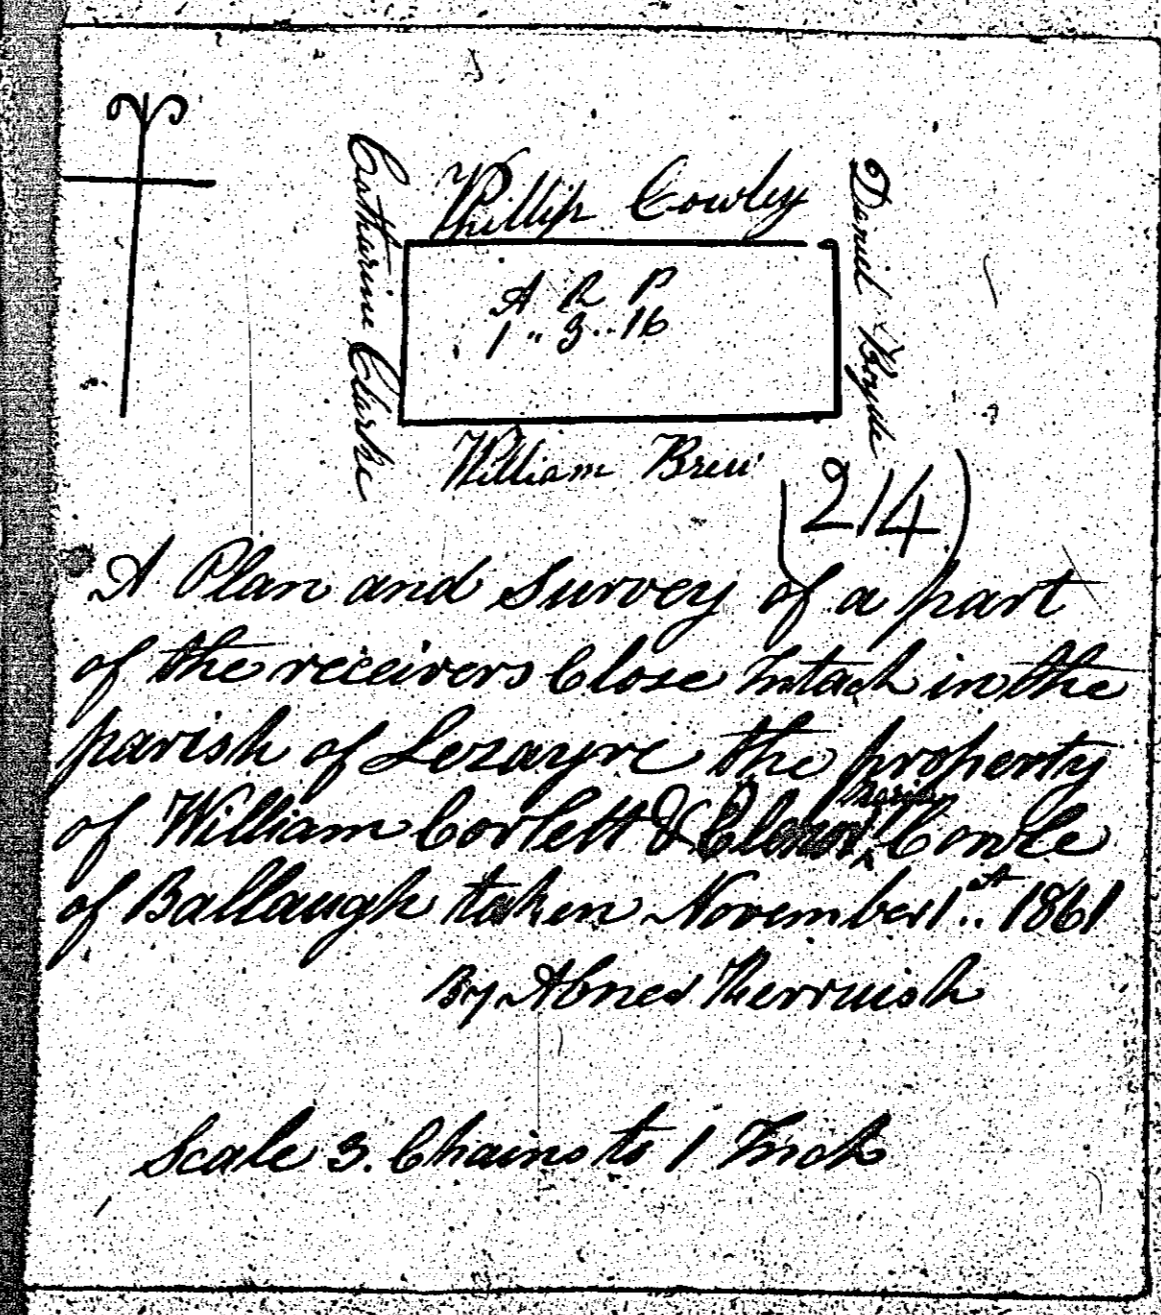 Phillip Cowley
Catharine Clarke
Daniel Boyde
A R P
1 " 3 .. 16
William Brew
(214)
A Plan and Survey of a part
of the receivers Close Intack in the
parish of Lezayre the property
of William Corlett & Cowle
of Ballaugh taken November 1st 1861
By Abner Kerruish
Scale 3. Chains to 1 Inch